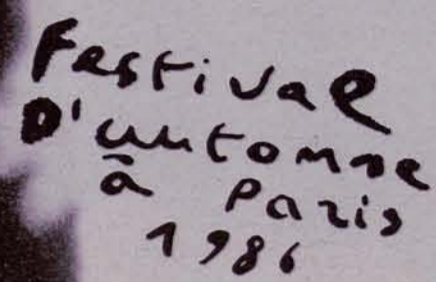 Festival
D'automne
à Paris
1986